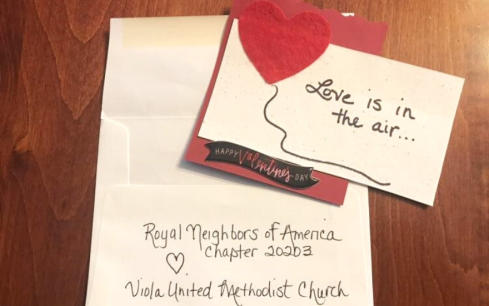 Love is in
the air...
HAPPY Valentines DAY
Royal Neighbors of America
Chapter 20203
Viola United Methodist Church